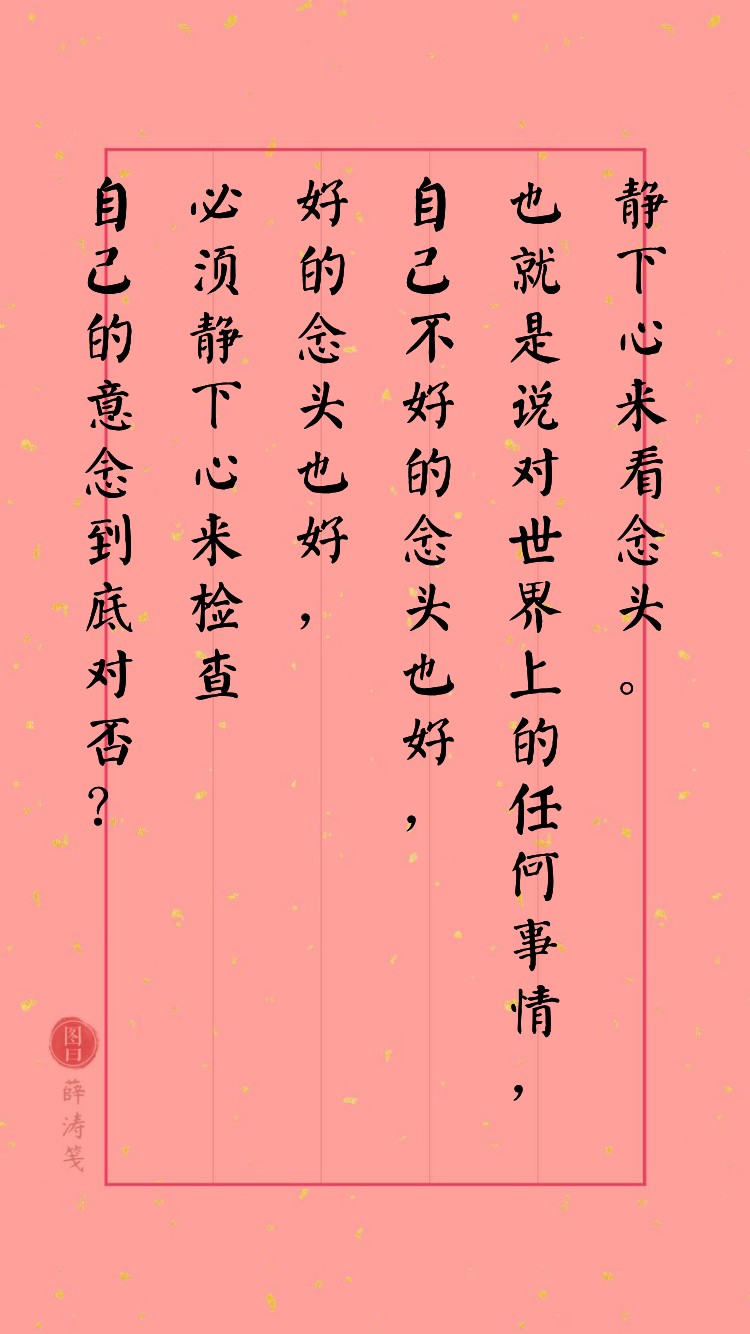 静下心来看念头。
也就是说对世界上的任何事情，
自己不好的念头也好，
好的念头也好，
必须静下心来检查
自己的意念到底对否？
图曰
薛涛笺